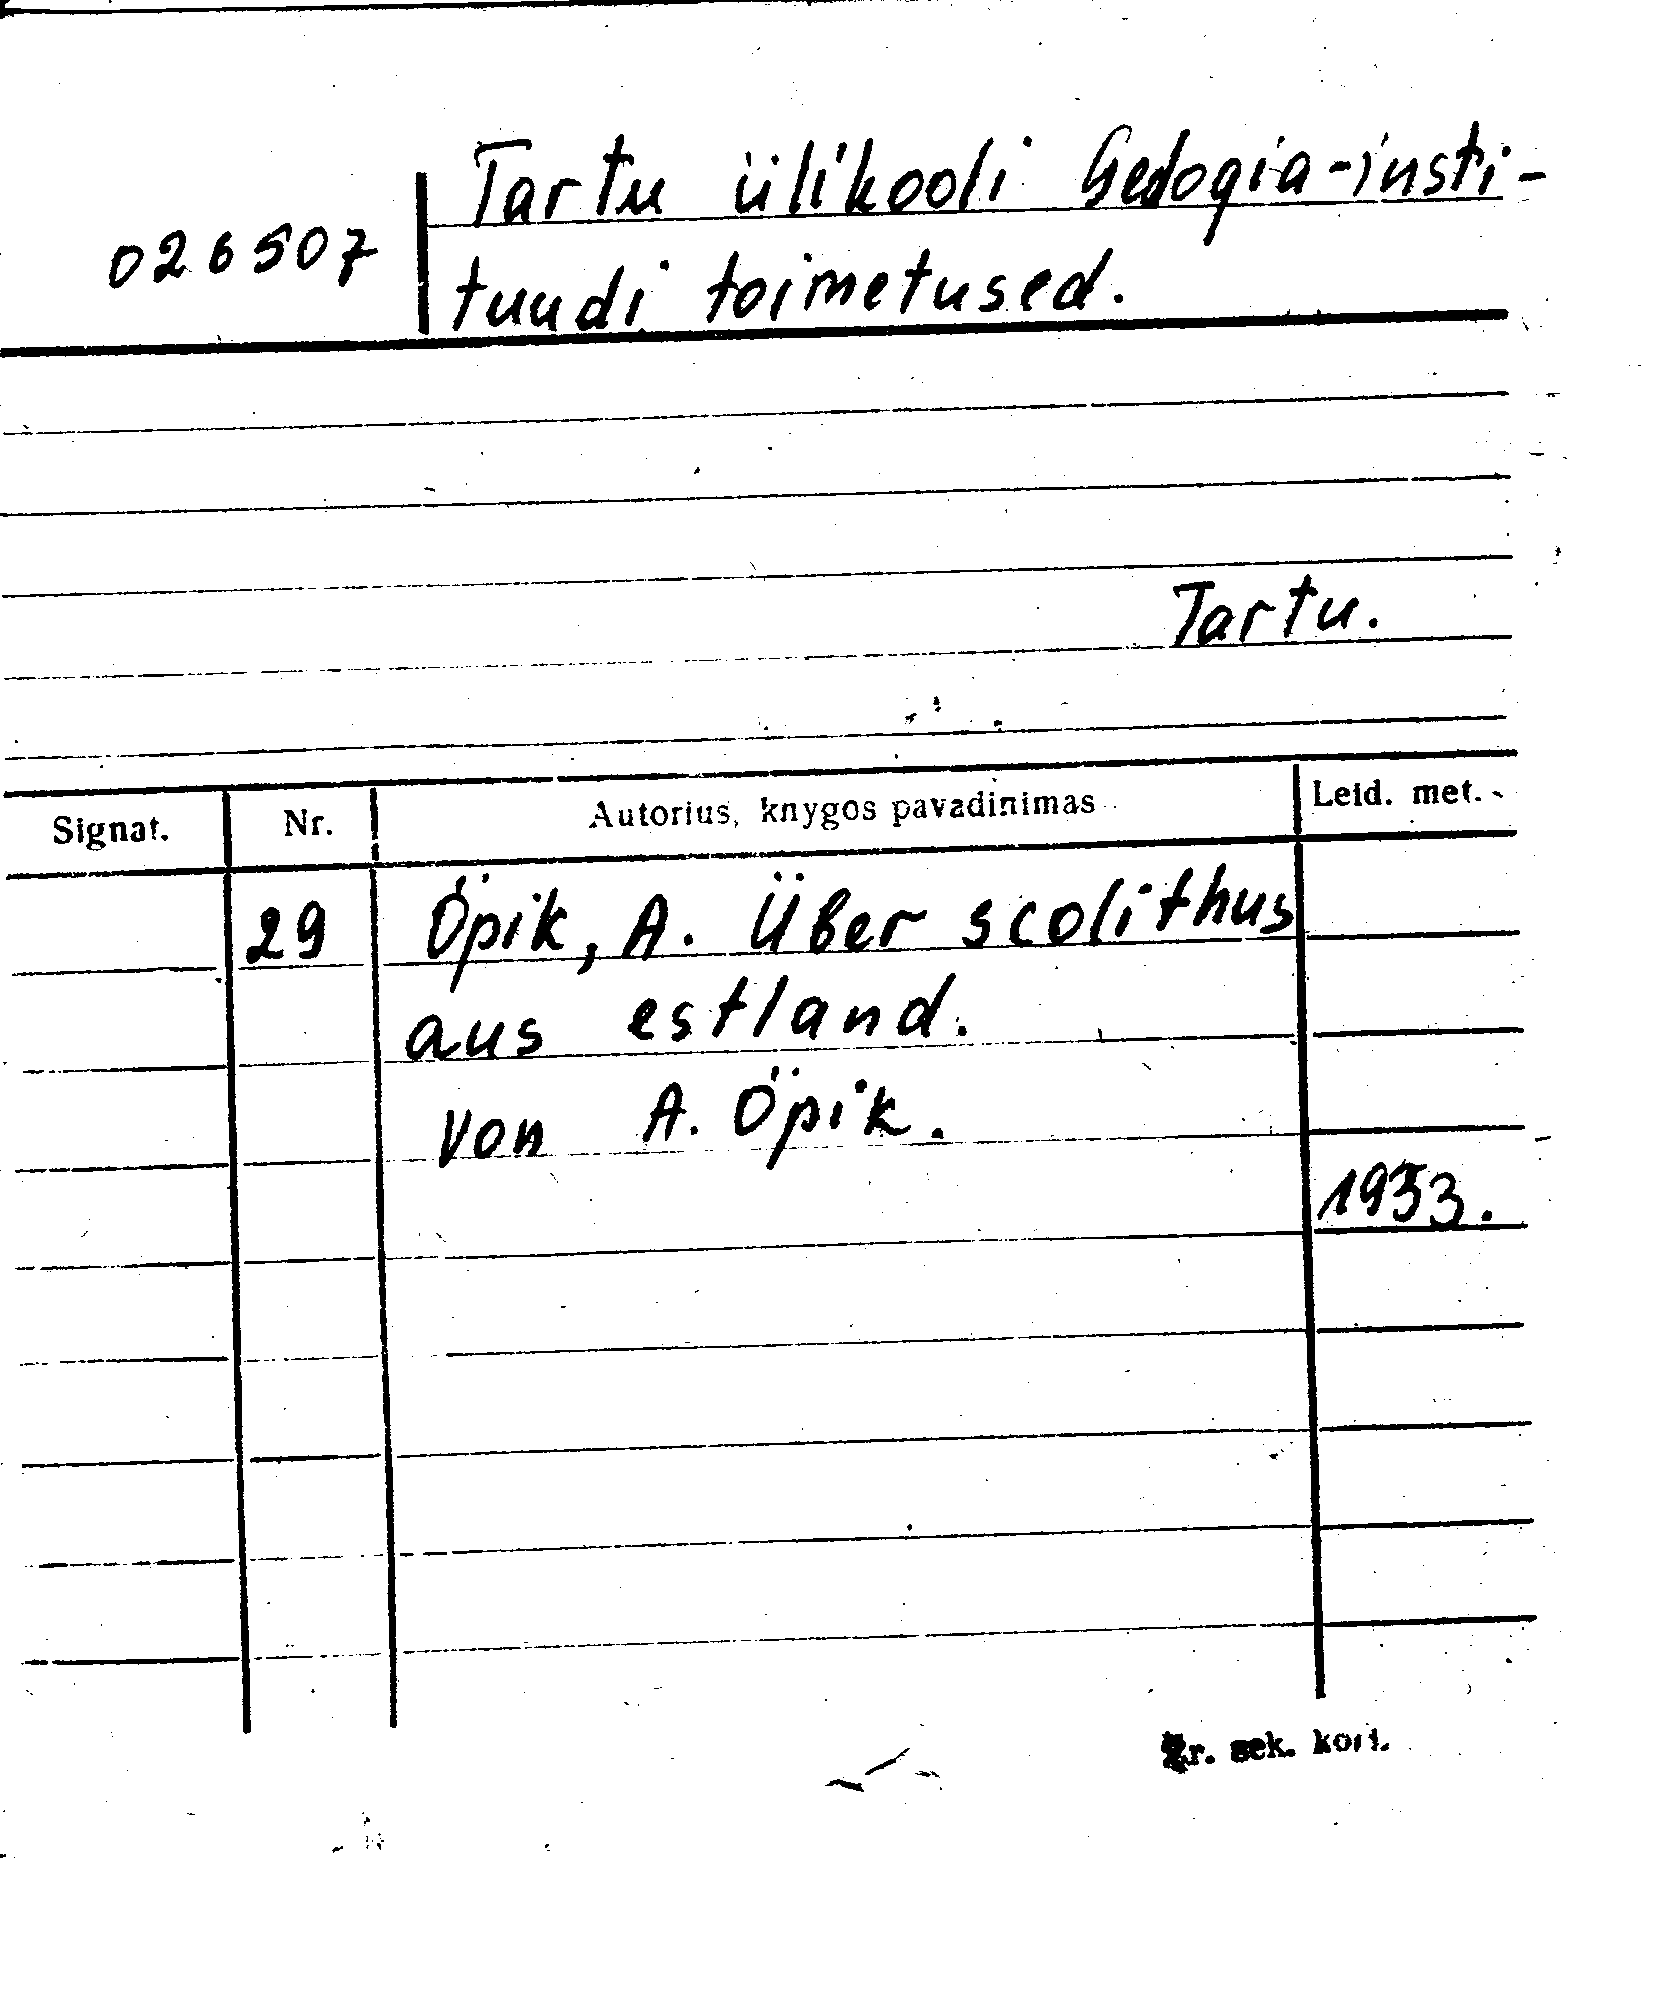 Tartu ülikooli Geologia-insti-
026507
tuudi toimetused.
Tartu.
Signat. Nr. Autorius, knygos pavadinimas Leid. met.
29 Öpik, A. Über scolithus
aus estland.
von A. Öpik.
1933.
sek. kort.